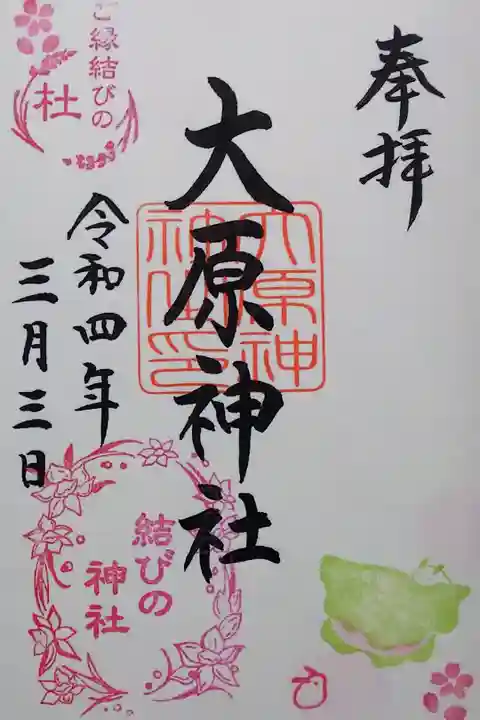 奉拝
大原神社
令和四年
三月三日
ご縁結びの
杜
結びの
神社
大原神